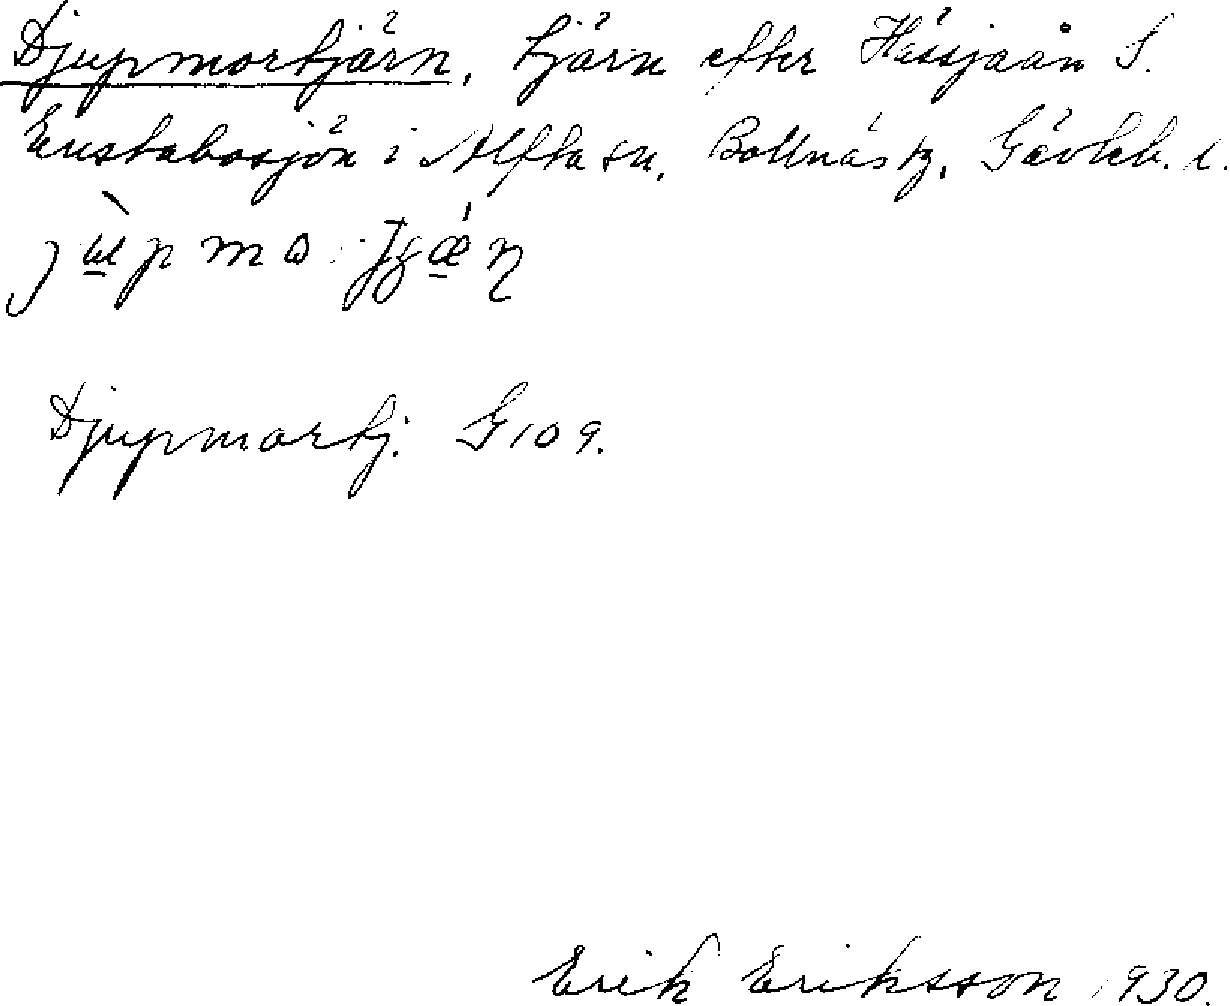 Djupmortjärn, tjärn efter Hässjaån S.
Enstabosjön i Alfta sn, Bollnäs tg, Gävleb. l.
Djupmortj. G 109.
Erik Eriksson 1930.